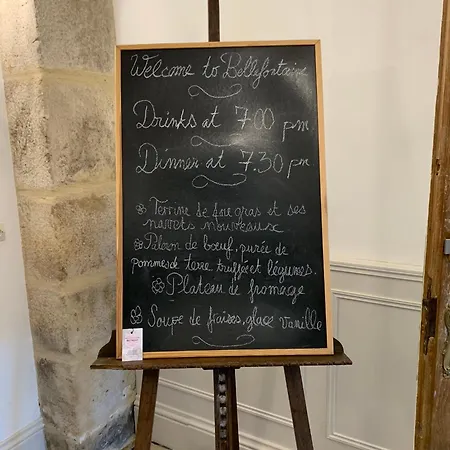 Welcome to Bellefontaine
Drinks at 7.00 pm
Dinner at 7.30 pm
Terrine de foie gras et ses
navets nouveaux
Paleron de bœuf, purée de
pommes de terre truffée et légumes.
Plateau de fromage
Soupe de fraises, glace vanille